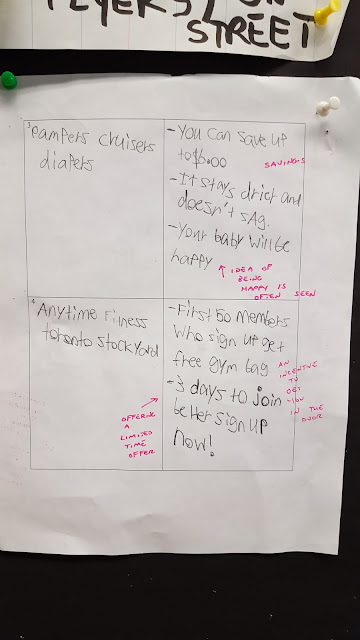 FLYERS / ON
STREET
3
Pampers Cruisers
diapers
- You can save up
to $6.00
SAVINGS
- It stays drier and
doesn't sag.
- Your baby will be
happy
IDEA OF
BEING
HAPPY IS
OFTEN SEEN
4
Anytime Fitness
toronto stockyard
OFFERING
A
LIMITED
TIME
OFFER
- First 50 members
who sign up get
free gym bag
- 3 days to join
better sign up
now!
AN
INCENTIVE
TO
GET
YOU
IN THE
DOOR